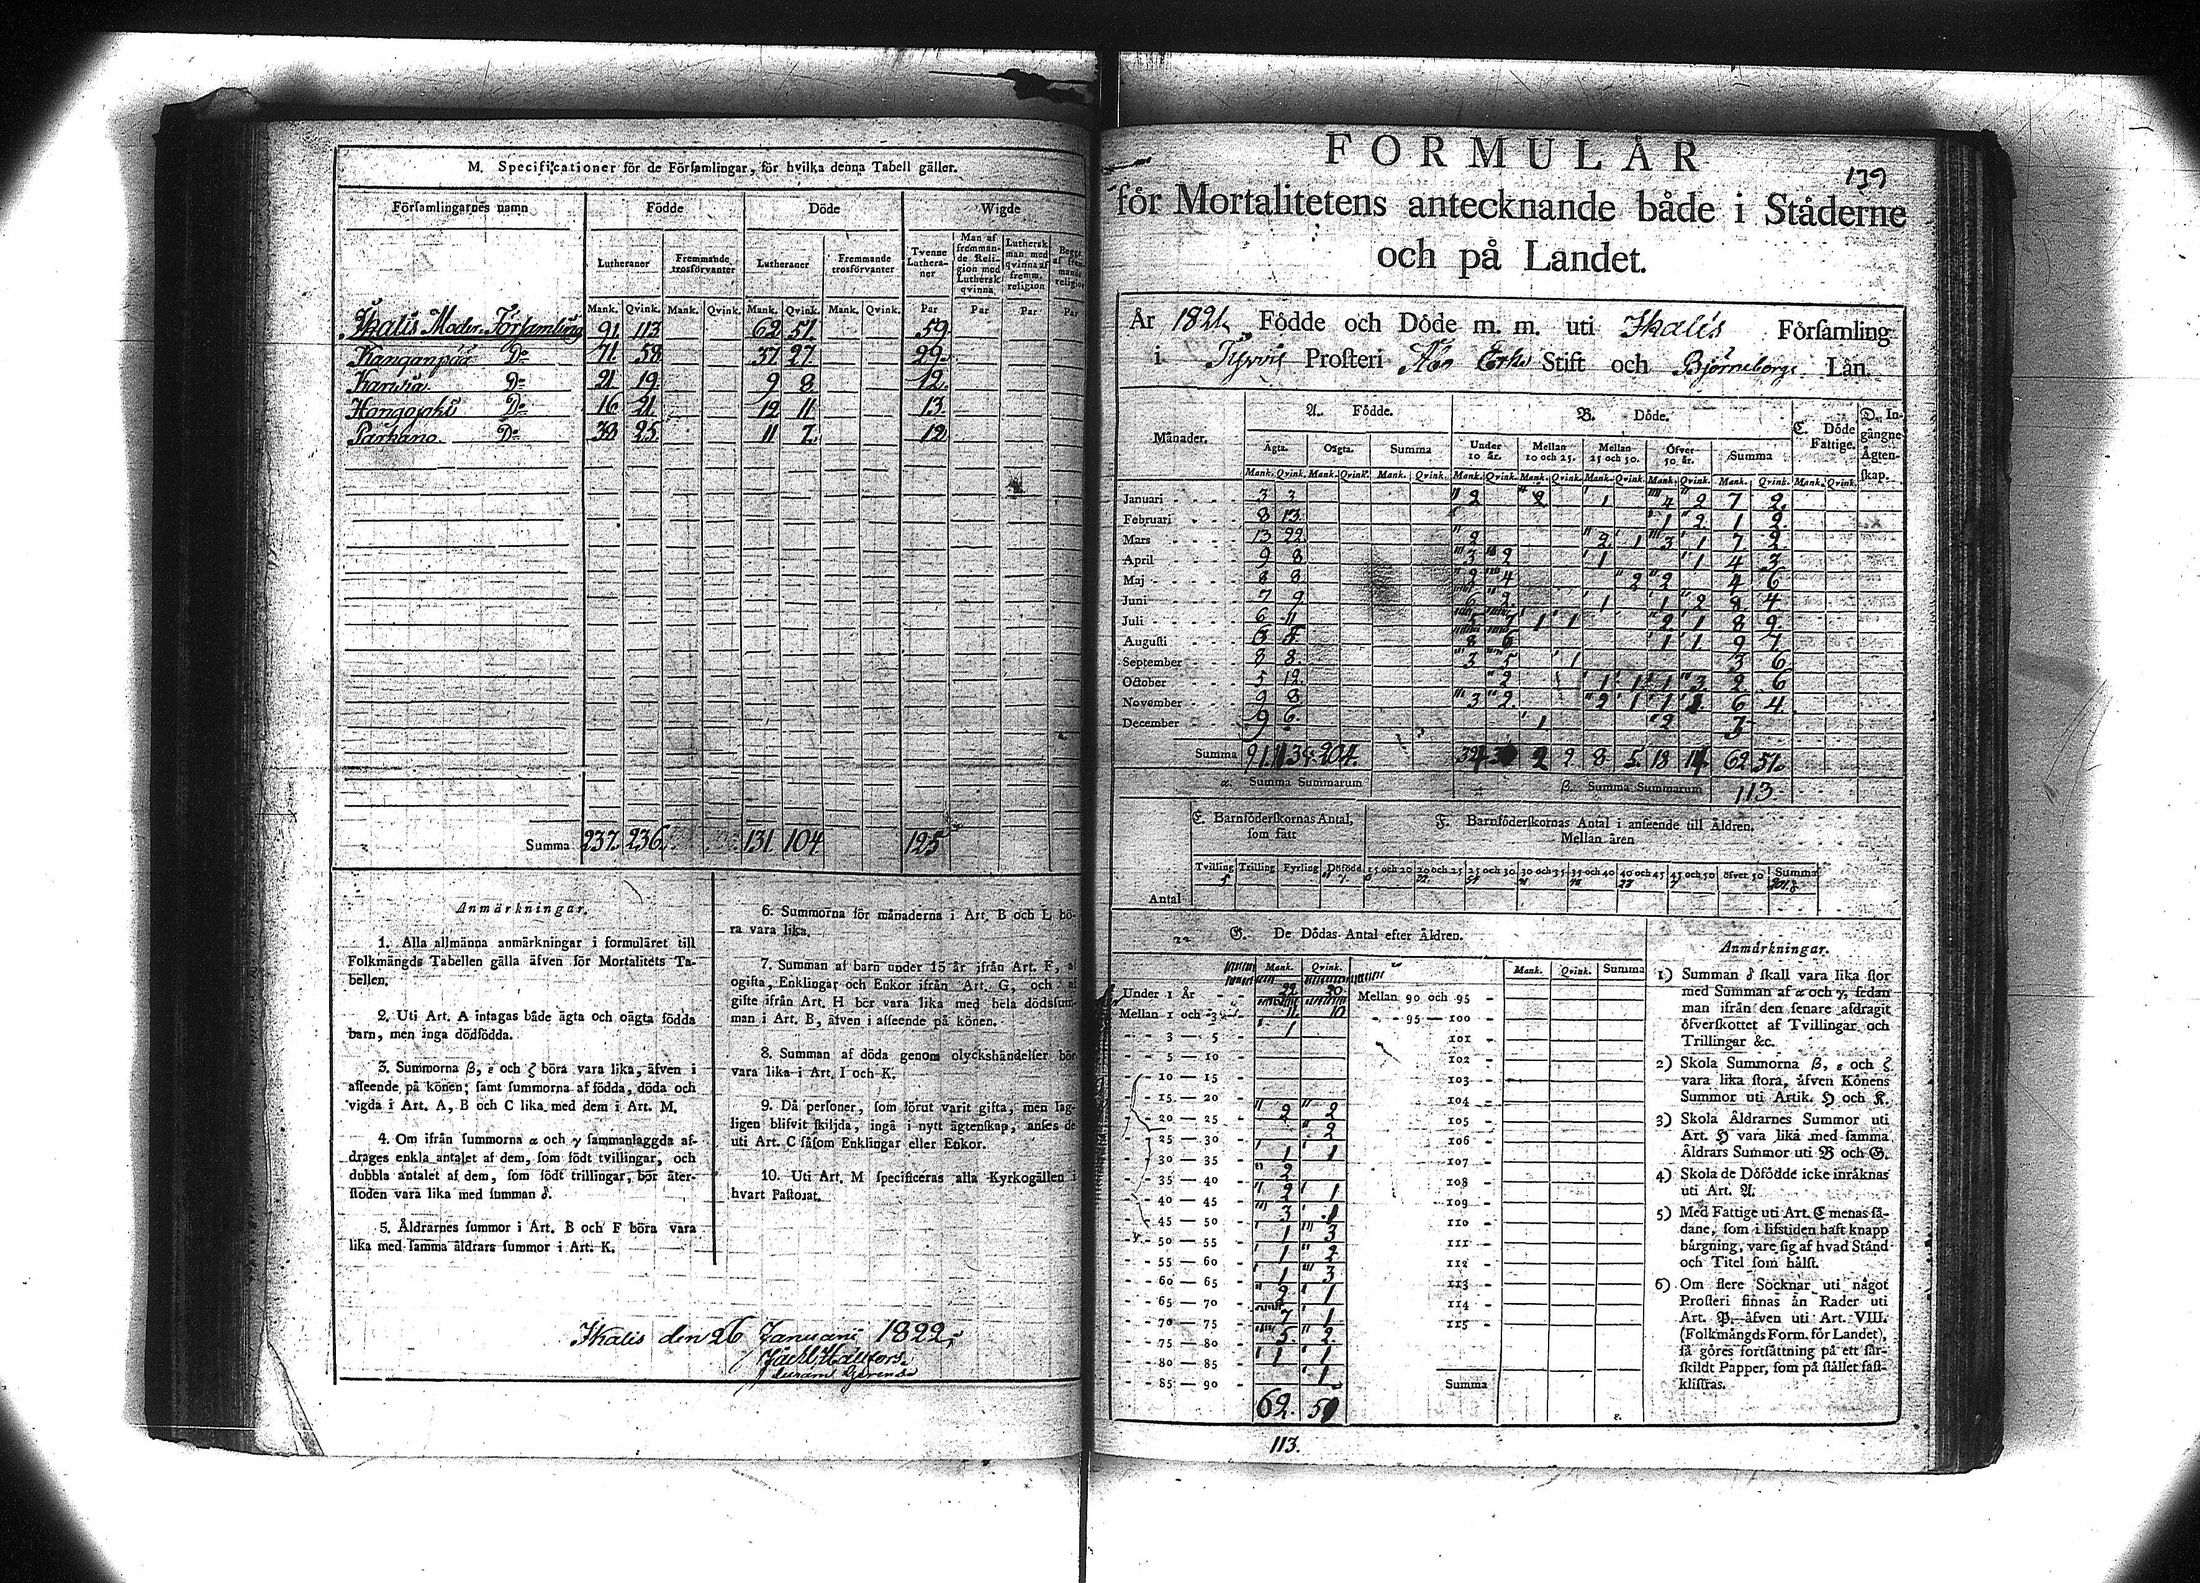 M. Specificationer för de Församlingar, för hvilka denna Tabell gäller.
Församlingarnes namn Födde Döde Wigde
Lutheraner Fremmande trosförvanter Lutheraner Fremmande trosförvanter Tvenne Lutheraner Man af fremmande Religion med Luthersk qvinna Luthersk man med qvinna af fremm. religion Begge af fremmande religion
Mank. Qvink. Mank. Qvink. Mank. Qvink. Mank. Qvink. Par Par Par Par
Ikalis Moder Församling 91 113 62 51 59
Kanganpää Do 71 58 37 27 29
Karvia Do 21 19 9 8 12
Hongojoki Do 16 21 12 11 13
Parkano Do 38 25 11 7 12
Summa 237 236 131 104 125
Anmärkningar.
1. Alla allmänna anmärkningar i formuläret till
Folkmängds Tabellen gälla äfven för Mortalitets Ta-
bellen.
2. Uti Art. A intagas både ägta och oägta födda
barn, men inga dödfödda.
3. Summorna β, ε och ζ böra vara lika, äfven i
afseende på könen; samt summorna af födda, döda och
vigda i Art. A, B och C lika med dem i Art. M.
4. Om ifrån summorna α och γ sammanlaggda af-
drages enkla antalet af dem, som födt tvillingar, och
dubbla antalet af dem, som födt trillingar, bör åter-
stoden vara lika med summan δ.
5. Åldrarnes summor i Art. B och F böra vara
lika med samma åldrars summor i Art. K.
6. Summorna för månaderna i Art. B och L bö-
ra vara lika.
7. Summan af barn under 15 år ifrån Art. F, af
ogifta, Enklingar och Enkor ifrån Art. G, och af
gifte ifrån Art. H bör vara lika med hela dödssum-
man i Art. B, äfven i afseende på könen.
8. Summan af döda genom olyckshändelser bör
vara lika i Art. I och K.
9. Då personer, som förut varit gifta, men lag-
ligen blifvit skiljda, ingå i nytt ägtenskap, anses de
uti Art. C såsom Enklingar eller Enkor.
10. Uti Art. M specificeras alla Kyrkogällen i
hvart Pastorat.
Ikalis den 26 Januari 1822
139
FORMULÅR
för Mortalitetens antecknande både i Stâderne
och på Landet.
År 1821 Födde och Döde m. m. uti Ikalis Församling
i Tyrvis Prosteri Åbo Erke Stift och Björneborgs Län.
Månader. A. Födde. B. Döde. C. Döde Fattige. D. Ingångne Ägtenskap.
Ägta. Oägta. Summa Under 10 år. Mellan 10 och 25. Mellan 25 och 50. Öfver 50 år. Summa
Mank. Qvink. Mank. Qvink. Mank. Qvink. Mank. Qvink. Mank. Qvink. Mank. Qvink. Mank. Qvink. Mank. Qvink. Mank. Qvink.
Januari 3 3 2 2 1 4 2 7 2
Februari 8 13 1 2 1 2
Mars 13 22 2 2 1 3 1 7 2
April 9 8 3 2 1 1 4 3
Maj 8 8 2 4 2 2 4 6
Juni 7 9 6 2 1 1 2 8 4
Juli 6 11 5 7 1 1 2 1 8 9
Augusti 6 5 8 6 1 1 9 7
September 8 8 3 5 1 3 6
October 5 12 2 1 1 1 3 2 6
November 9 8 3 2 2 1 1 1 6 4
December 9 6 1 2 3
Summa 91 113 204 34 30 2 2 8 5 18 14 62 51
α. Summa Summarum β. Summa Summarum 113
E. Barnföderskornas Antal, som fått F. Barnföderskornas Antal i anseende till Åldren. Mellan åren
Tvilling Trilling Fyrling Dödfödd 15 och 20 20 och 25 25 och 30 30 och 35 35 och 40 40 och 45 45 och 50 öfver 50 Summa
Antal 5
G. De Dödas Antal efter Åldren.
Mank. Qvink. Mank. Qvink. Summa
Under 1 År 22 20 Mellan 90 och 95
Mellan 1 och 3 11 10 95 — 100
3 — 5 1 101
5 — 10 102
10 — 15 103
15 — 20 104
20 — 25 2 2 105
25 — 30 2 106
30 — 35 1 1 107
35 — 40 2 108
40 — 45 2 1 109
45 — 50 3 1 110
50 — 55 1 3 111
55 — 60 1 2 112
60 — 65 1 3 113
65 — 70 2 1 114
70 — 75 7 1 115
75 — 80 5 2
80 — 85 1 1
85 — 90 1 Summa
62 51
113.
Anmärkningar.
1) Summan δ skall vara lika stor
med Summan af α och γ, sedan
man ifrån den senare afdragit
öfverskottet af Tvillingar och
Trillingar &c.
2) Skola Summorna β, ε och ζ
vara lika stora, äfven Könens
Summor uti Artik. H och K.
3) Skola Åldrarnes Summor uti
Art. H vara lika med samma
Åldrars Summor uti B och G.
4) Skola de Döfödde icke inräknas
uti Art. A.
5) Med Fattige uti Art. C menas så-
dane, som i lifstiden haft knapp
bärgning, vare sig af hvad Stånd
och Titel som hälst.
6) Om flere Socknar uti något
Prosteri finnas än Rader uti
Art. P. äfven uti Art. VIII.
(Folkmängds Form. för Landet),
så göres fortsättning på ett sär-
skildt Papper, som på stället fast-
klistras.